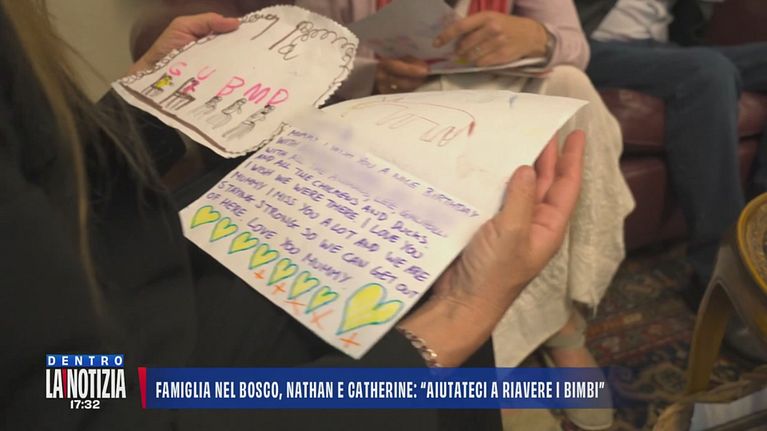 GUBMD
MUMMY I WISH YOU A NICE BIRTHDAY
WITH
WITH ALL
AND ALL THE CHICKENS AND DUCKS.
I WISH WE WERE THERE I LOVE YOU
MUMMY I MISS YOU A LOT AND WE ARE
STAYING STRONG SO WE CAN GET OUT
OF HERE LOVE YOU MUMMY
DENTRO
LA NOTIZIA
17:32
FAMIGLIA NEL BOSCO, NATHAN E CATHERINE: “AIUTATECI A RIAVERE I BIMBI”